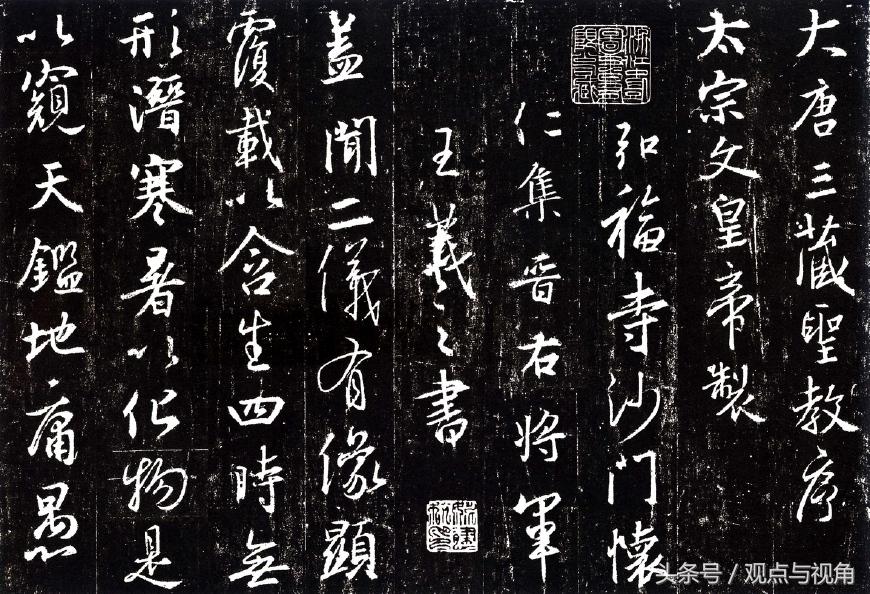 大唐三藏聖教序
太宗文皇帝製
弘福寺沙門懷
仁集晉右將軍
王羲之書
蓋聞二儀有像顯
覆載以含生四時無
形潛寒暑以化物是
以窺天鑑地庸愚
头条号 / 观点与视角